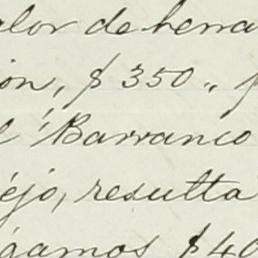 alor de herra
ión, $350,, p
el Barranco
éjo, resulta
ágamos $40